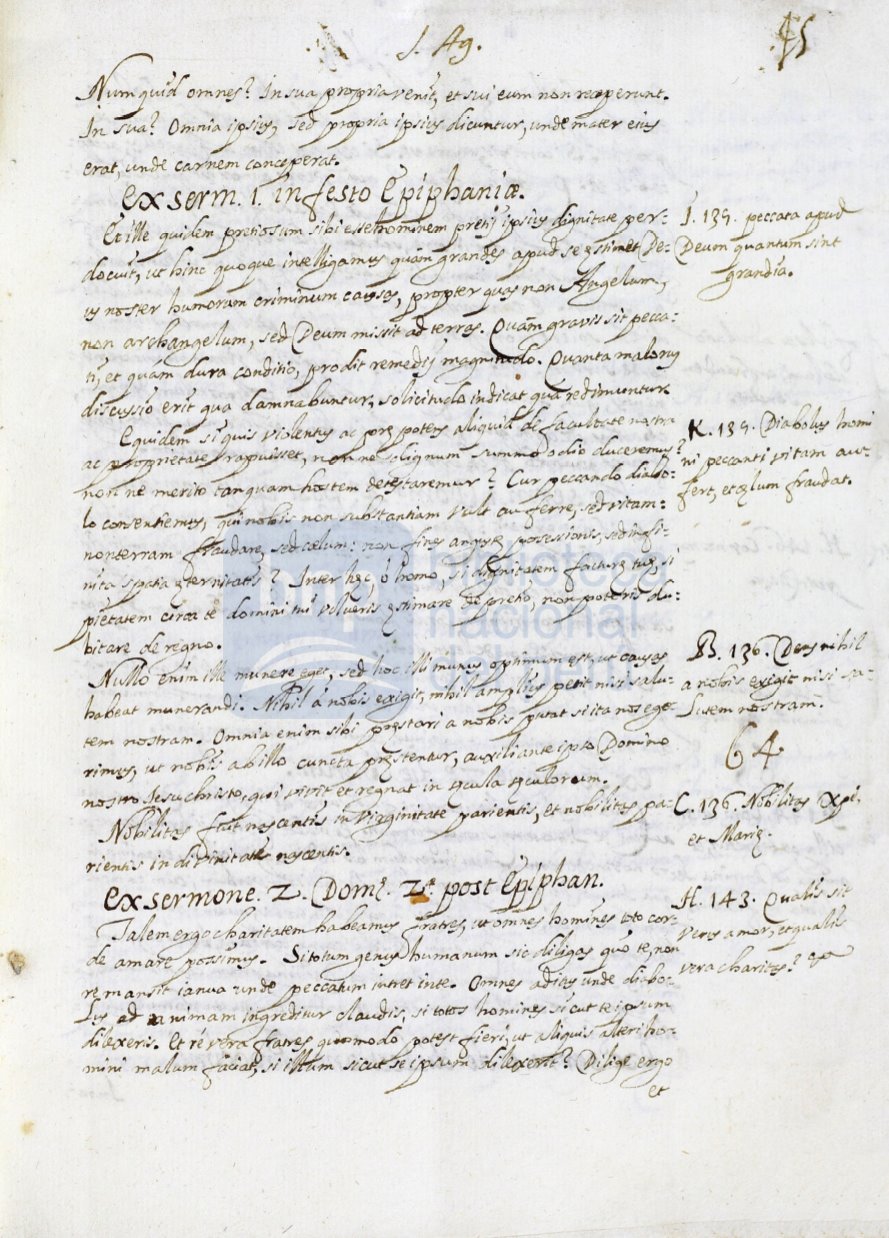 S. Ag.
45
Numquid omnes? In sua propria venit, et sui eum non receperunt.
In sua? Omnia ipsius, sed propria ipsius dicuntur, unde mater eius
erat, unde carnem conceperat.
Ex serm. 1. in festo Epiphaniæ.
Et ille quidem pretiosum sibi esse hominem pretij ipsius dignitate per-
docuit, ut hinc quoque intelligamus quàm grandes apud se ęstimet De-
us noster humoram criminum causas, propter quas non Angelum,
non archangelum, sed Deum missit ad terras. Quàm gravis sit pecca-
ti, et quàm dura conditio, prodit remedij magnitudo. Quanta malorum
discussio erit qua damnabuntur, solicitudo indicat qua redimuntur.
Equidem si quis violentus ac prępotens aliquid de facultate nostra
ac proprietate rapuisset, nonne dignum summo odio duceremus?
nonne merito tanquam hostem detestaremur? Cur peccando diabo-
lo consentiemus, qui nobis non substantiam vult auferre, sed vitam
non terram fraudare, sed cœlum: non fines angustę possessionis, sed infi-
nita spatia ęternitatis? Inter hęc, ô homo, si dignitatem facturę tuę, si
pietatem circa te domini tui volueris ęstimare de pretio, non poteris du-
bitare de regno.
Nullo enim ille munere eget, sed hoc illi munus optimum est, ut causas
habeat munerandi. Nihil à nobis exigit, nihil amplius petit nisi salu-
tem nostram. Omnia enim sibi pręstari a nobis putat si ita nos ege-
rimus, ut nobis ab illo cuncta pręstentur, auxiliante ipso Domino
nostro Iesu christo, qui vivit et regnat in sęcula sęculorum.
Nobilitas fuit nascentis in Virginitate parientis, et nobilitas pa-
rientis in divinitate nascentis.
Ex sermone. 2. Domi. 2ę post Epiphan.
Talem ergo charitatem habeamus fratres, ut omnes homines toto cor-
de amare possimus. Si totum genus humanum sic diligas quo te, non
remansit ianua unde peccatum intret in te. Omnes aditus unde diabo-
lus ad animam ingreditur claudis, si totos homines sicut te ipsum
dilexeris. Et révera fratres quomodo potest fieri, ut aliquis alteri ho-
mini malum faciat, si illum sicut se ipsum dilexerit? Dilige ergo
et
I. 135. peccata apud
Deum quantum sint
grandia.
K. 135. Diabolus homi
ni peccanti vitam au-
fert, et cęlum fraudat.
B. 136. Deus nihil
a nobis exigit nisi sa-
lutem nostram.
64
C. 136. Nobilitas Xpi,
et Marię.
H. 143. Qualis sit
verus amor, et qualis
vera charitas?
biblioteca
nacional
del perú